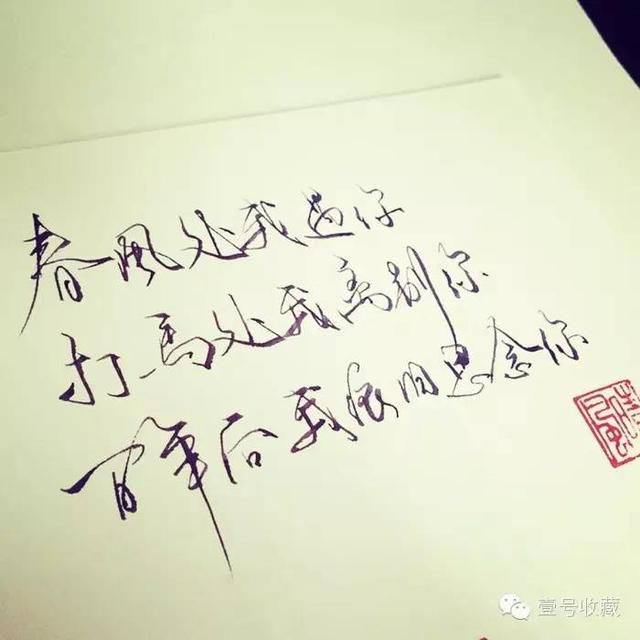 春风处我遇你
打马处我离别你
百年后我很旧思念你
壹号收藏